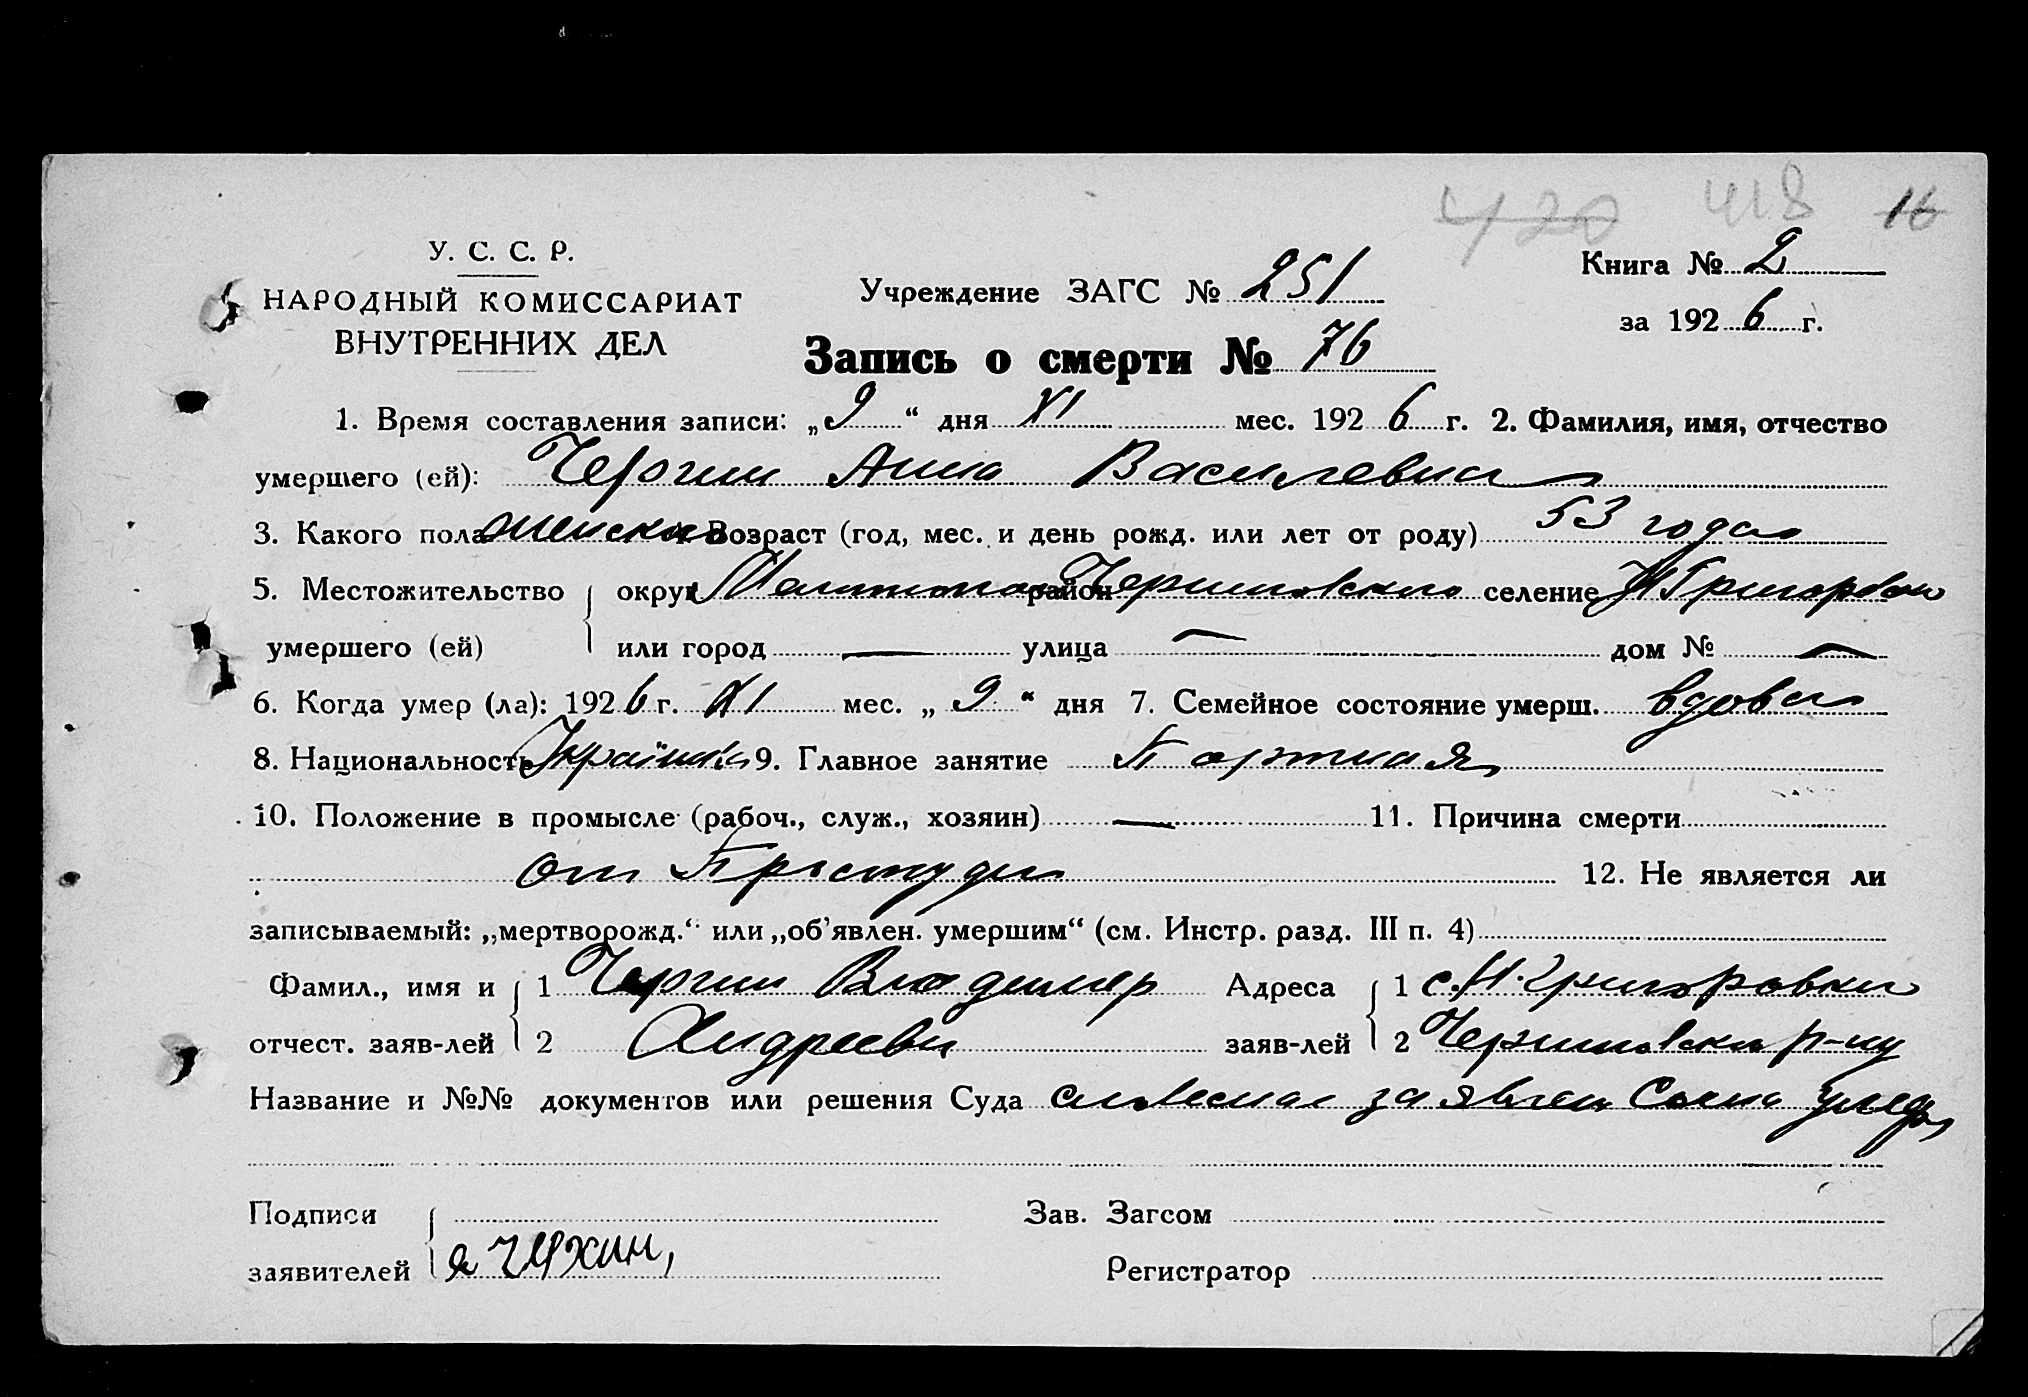 420 418 16
У. С. С. Р.
НАРОДНЫЙ КОМИССАРИАТ
ВНУТРЕННИХ ДЕЛ
Учреждение ЗАГС № 251
Книга № 2
за 1926 г.
Запись о смерти № 76
1. Время составления записи: „9“ дня XI мес. 1926 г. 2. Фамилия, имя, отчество
умершего (ей): Анна Василевна
3. Какого пола Возраст (год, мес. и день рожд. или лет от роду) 53 года
5. Местожительство округ район селение
умершего (ей) или город — улица — дом № —
6. Когда умер (ла): 1926 г. XI мес. „9“ дня 7. Семейное состояние умерш. вдова
8. Национальность 9. Главное занятие Портная
10. Положение в промысле (рабоч., служ., хозяин) — 11. Причина смерти
от Простуди 12. Не является ли
записываемый: „мертворожд.“ или „об'явлен. умершим“ (см. Инстр. разд. III п. 4)
Фамил., имя и 1 Владимер Адреса 1 с. Н. Григоровки
отчест. заяв-лей 2 Андреевич заяв-лей 2 р-ну
Название и №№ документов или решения Суда словесная заявлен Сына
Подписи Зав. Загсом
заявителей Регистратор